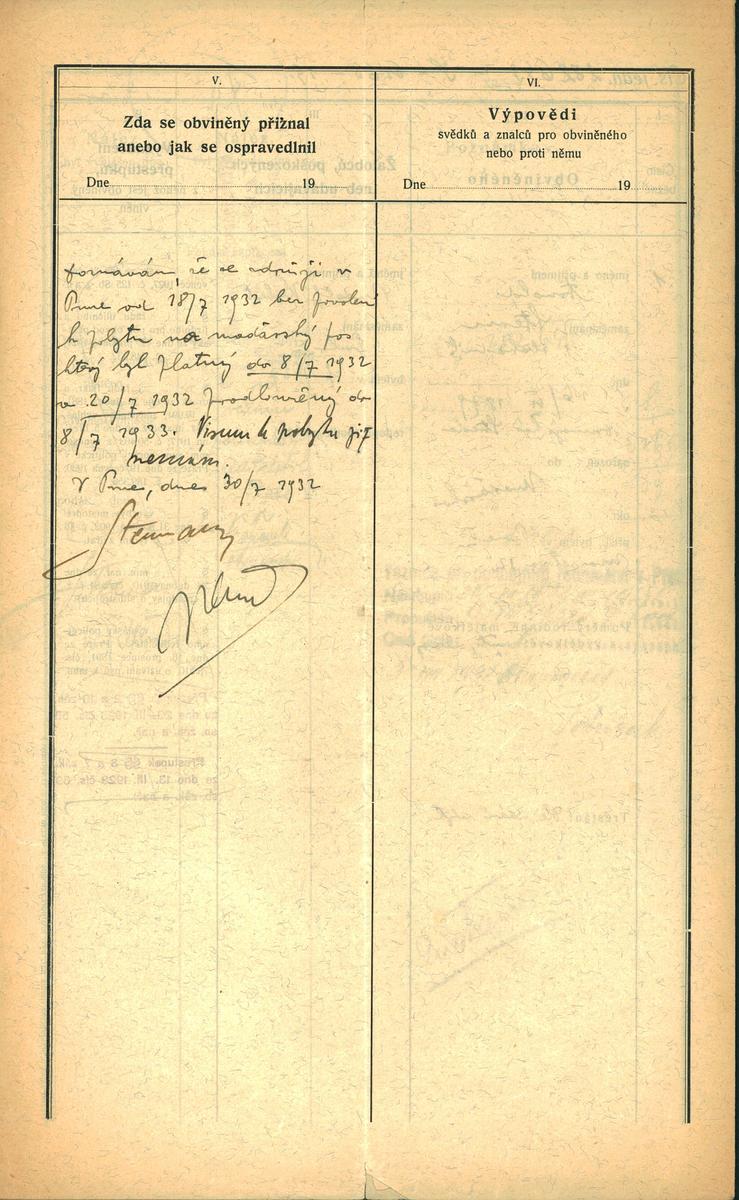 V.
Zda se obviněný přiznal
anebo jak se ospravedlnil
Dne 19
VI.
Výpovědi
svědků a znalců pro obviněného
nebo proti němu
Dne 19
že se zdržuji v
od 18/7 1932 bez povolení
k pobytu na maďarský pas
který byl platný do 8/7 1932
a 20/7 1932 prodloužený do
8/7 1933. Visum k pobytu již
nemám.
V dnes 30/7 1932